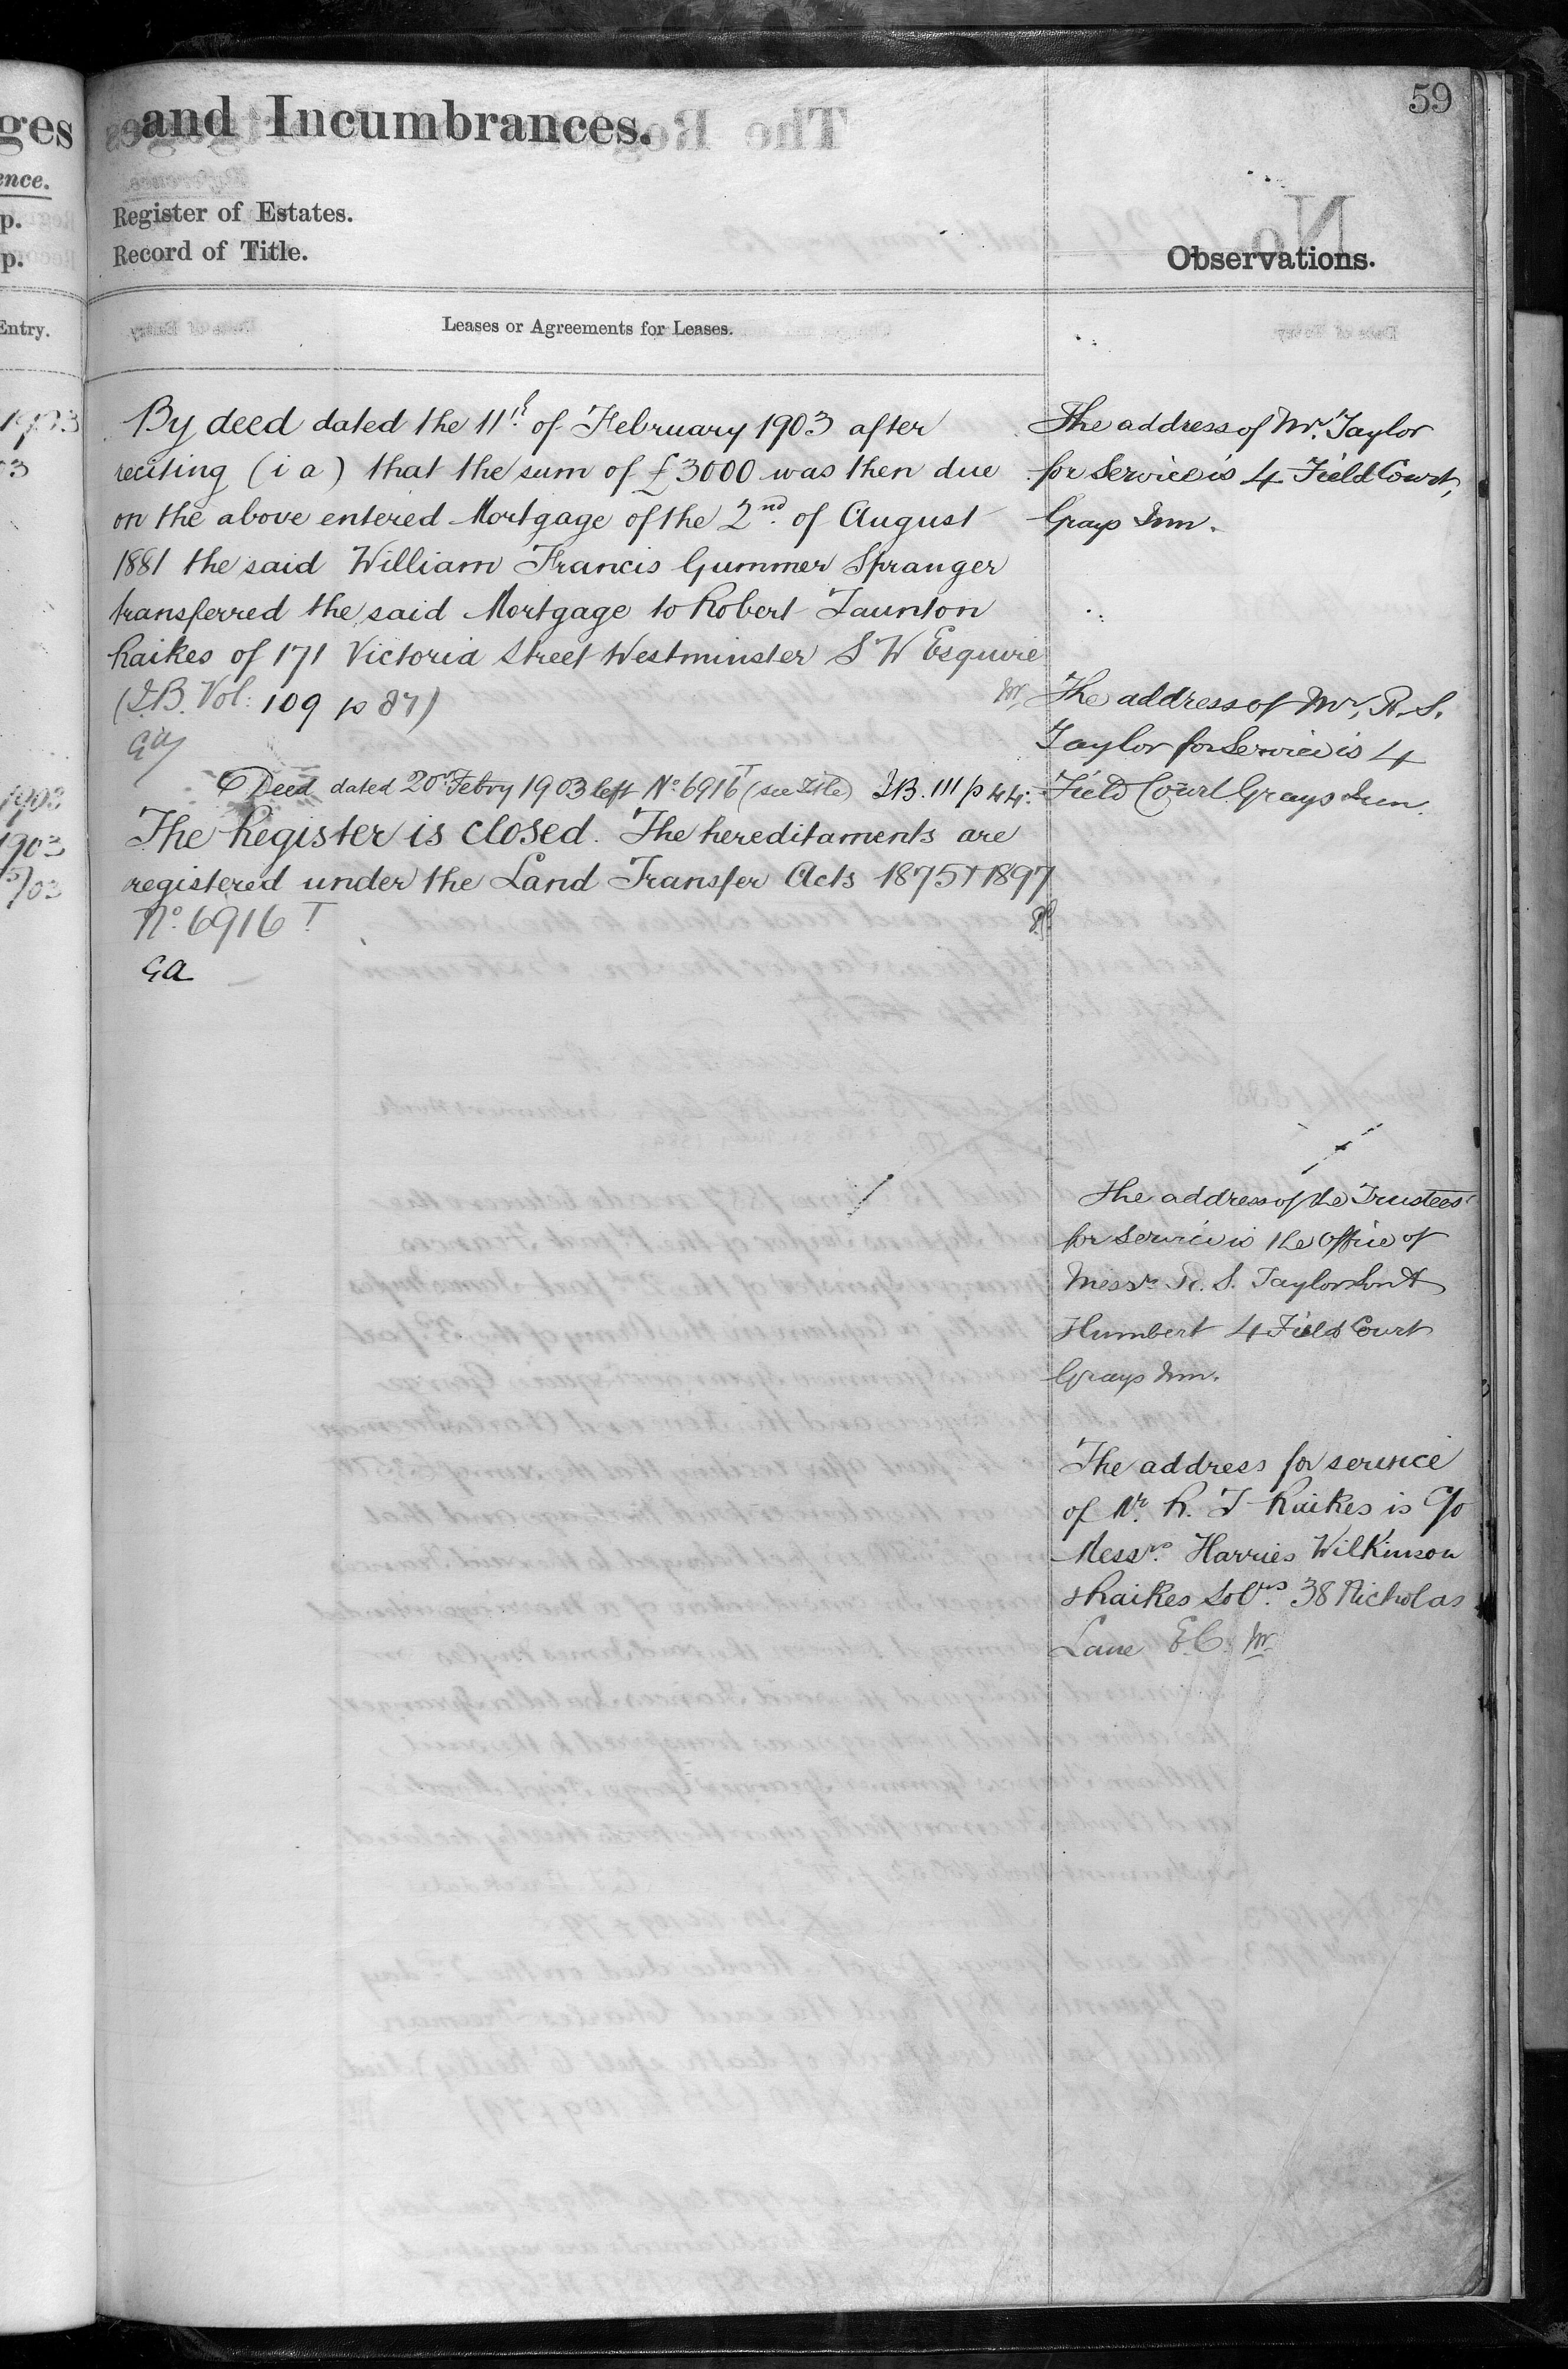 59
ges
and Incumbrances.
ence.
p.
Register of Estates.
p.
Record of Title.
Observations.
Entry.
Leases or Agreements for Leases.
1903
03
By deed dated the 11th of February 1903 after
reciting (i a) that the sum of £3000 was then due
on the above entered Mortgage of the 2nd of August
1881 the said William Francis Gummer Spranger
transferred the said Mortgage to Robert Taunton
Raikes of 171 Victoria Street Westminster S W Esquire
(I.B. Vol: 109 p 87)
Ga
1903
Deed dated 20th Febry 1903 left No 6916T (see Title) I.B. 111 p 44.
1903
The Register is closed. The hereditaments are
5/03
registered under the Land Transfer Acts 1875 & 1897
No. 6916 T
Ga
The address of Mr. Taylor
for Service is 4 Field Court,
Grays Inn.
The address of Mr. R. S.
Taylor for Service is 4
Field Court Grays Inn.
The address of the Trustees
for service is the Office of
Messrs R. S. Taylor Son &
Humbert 4 Field Court
Grays Inn.
The address for service
of Mr. R. T Raikes is C/o
Messrs. Harries Wilkinson
& Raikes Solrs. 38 Nicholas
Lane E.C.